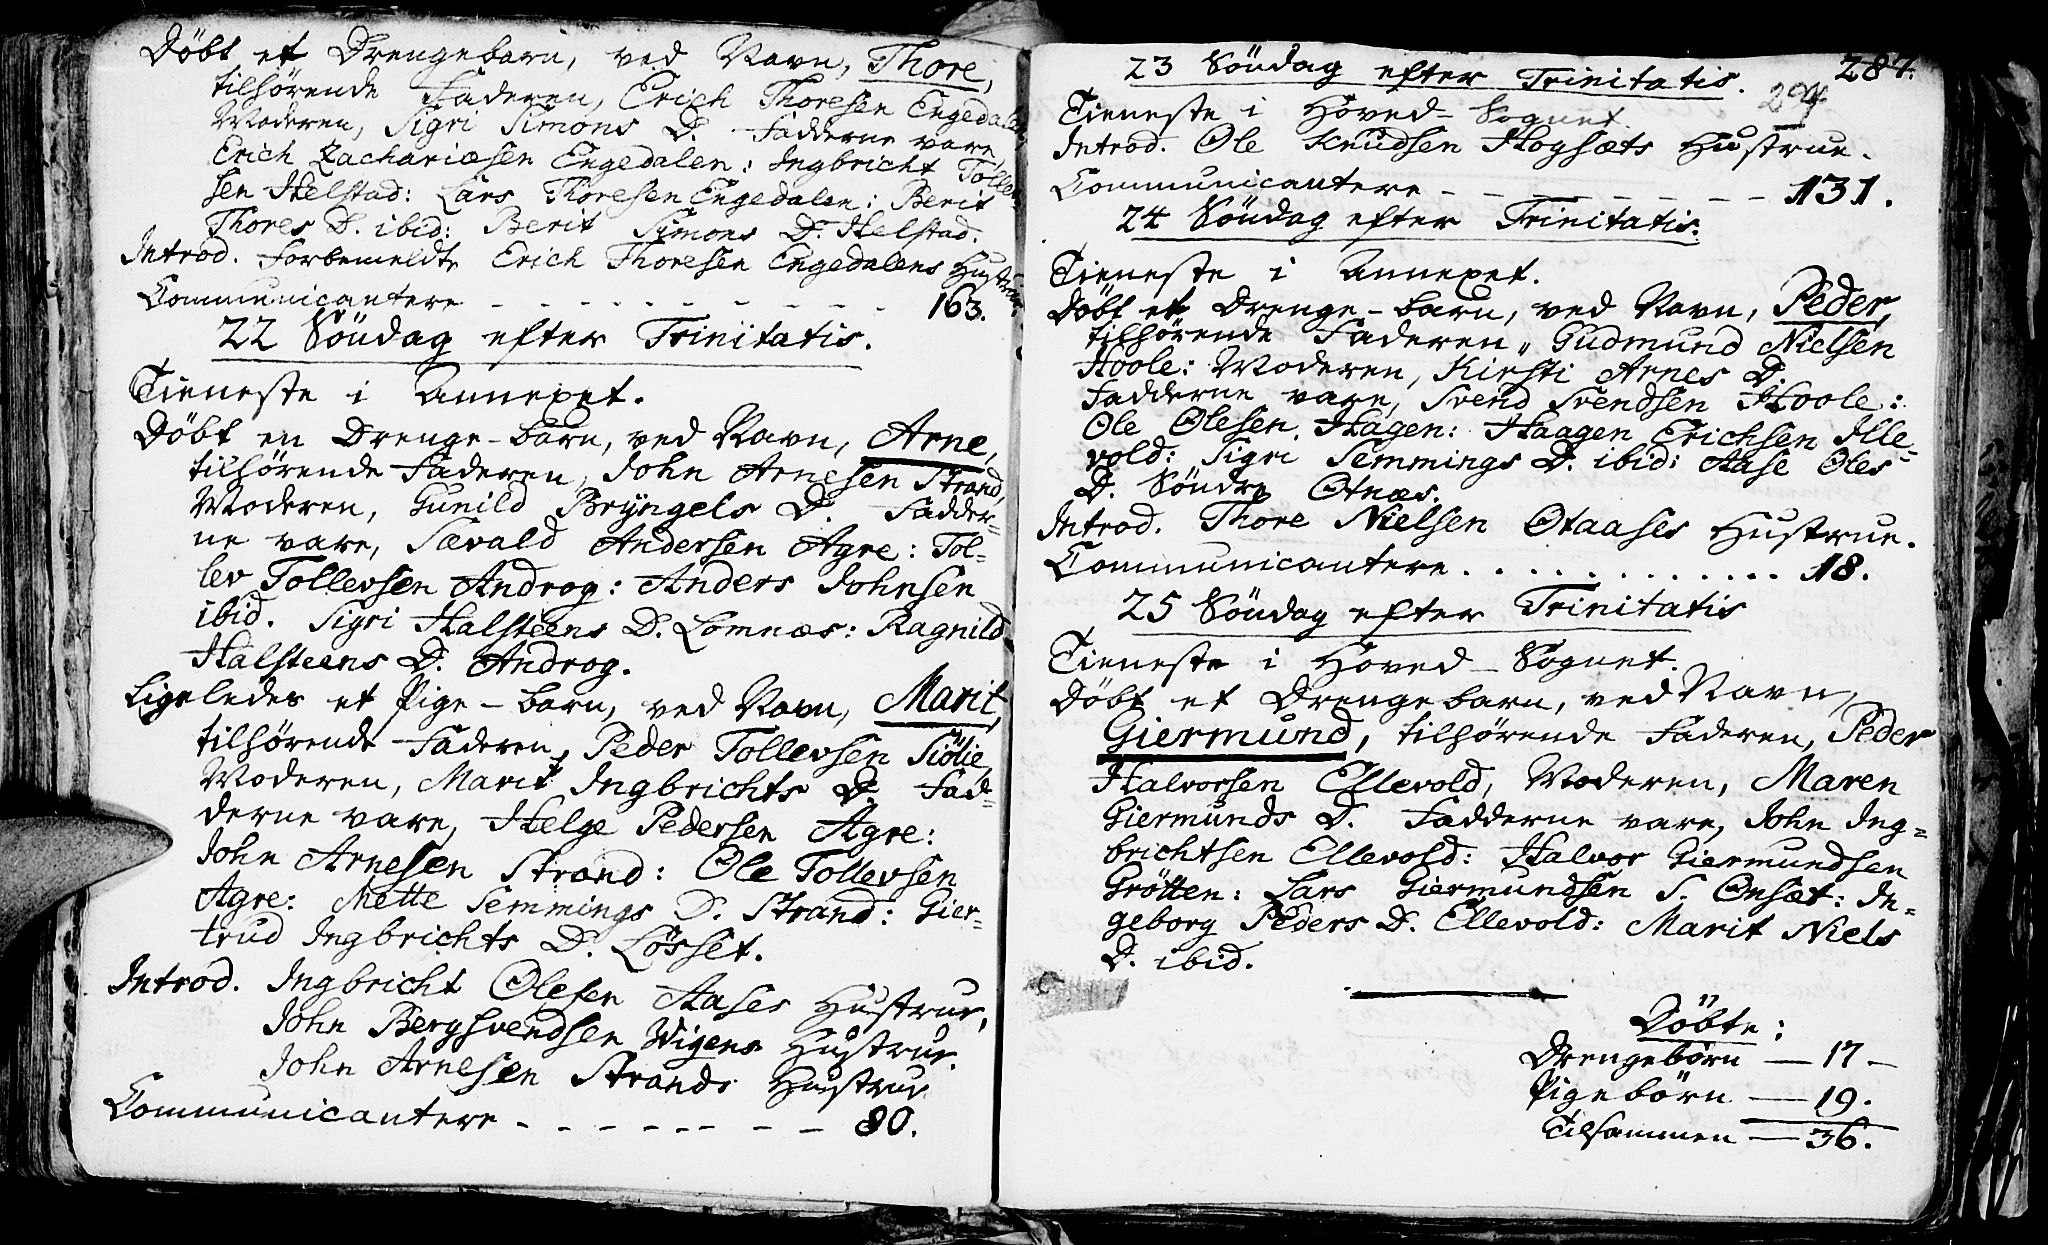 Döbt et Drengebarn, ved Navn, Thore,
tilhørende Faderen, Erich Thoresen Engedalen
Moderen, Sigri Simons D. Fadderne vare,
Erich Zachariæsen Engedalen: Ingbricht Tollev
sen Helstad: Lars Thoresen Engedalen: Berit
Thores D. ibid: Berit Simons D. Helstad.
Introd. Forbemeldte Erich Thoresen Engedalens Hustrue
Communicantere - - - - - - - - - 163.
22 Söndag efter Trinitatis.
Tieneste i Annexet.
Döbt en Drenge-barn, ved Navn, Arne,
tilhörende Faderen, John Arnesen Strand,
Moderen, Gunild Bryngels D. Fadder-
ne vare, Sævald Andersen Agre: Tol-
lev Tollevsen Androg: Anders Johnsen
ibid. Sigri Halsteens D. Lomnæs: Ragnild
Halsteens D. Androg.
Ligeledes et Pige-barn, ved Navn, Marit,
tilhørende Faderen, Peder Tollevsen Siölie,
Moderen, Marit Ingbrichts D. Fad-
derne vare, Helge Pedersen Agre:
John Arnesen Strand: Ole Tollevsen
Agre: Mette Semmings D. Strand: Gier-
trud Ingbrichts D. Løsset.
Introd. Ingbricht Olesen Aases Hustrue,
John Bergsvendsen Wigens Hustrue.
John Arnesen Strands Hustrue
Communicantere - - - - - - - - 80.
287.
23 Söndag efter Trinitatis.
Tieneste i Hoved-Sognet
Introd. Ole Knudsen Hogsæts Hustrue.
Communicantere - - - - - - - - - 131.
24 Söndag efter Trinitatis.
Tieneste i Annexet.
Döbt et Drenge-barn, ved Navn, Peder,
tilhörende Faderen, Gudmund Nielsen
Hoole: Moderen, Kirsti Arnes D.
Fadderne vare, Svend Svendsen Hoole:
Ole Olesen Hagen: Haagen Erichsen Ille-
vold: Sigri Semmings D. ibid: Aase Oles
D. Söndre Otnæs.
Introd. Thore Nielsen Otaases Hustrue.
Communicantere . . . . . . . . . . . . 18.
25 Söndag efter Trinitatis
Tieneste i Hoved-Sognet.
Döbt et Drengebarn, ved Navn,
Giermund, tilhörende Faderen, Peder
Halvorsen Ellevold, Moderen, Maren
Giermunds D. Fadderne vare, John Ing-
brichtsen Ellevold: Halvor Giermundsen
Grötten: Lars Giermundsen S. Onsæt: In-
geborg Peders D. Ellevold: Marit Niels
D. ibid.
Döbte:
Drengebörn — 17 —
Pigebörn — 19.
Tilsammen — 36.